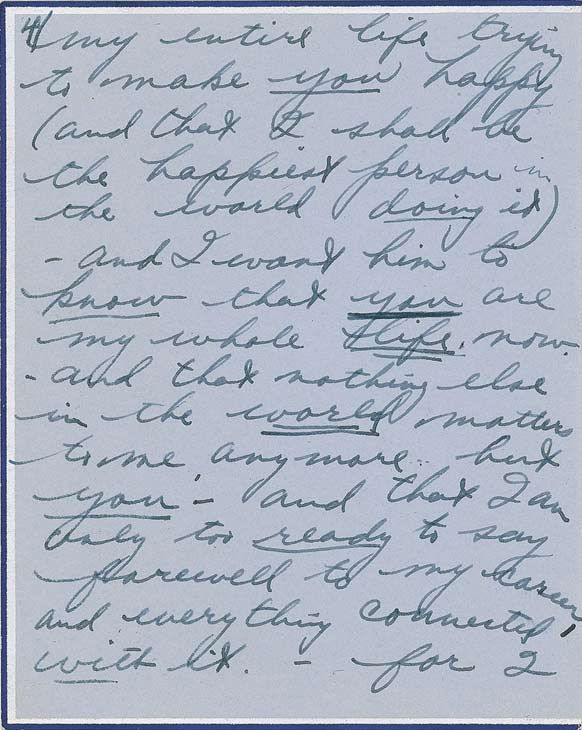 4/ my entire life trying
to make you happy
(and that I shall be
the happiest person in
the world doing it)
- and I want him to
know that you are
my whole life, now.
- and that nothing else
in the world matters
to me anymore but
you - and that I am
only too ready to say
farewell to my career,
and everything connected,
with it. - for I